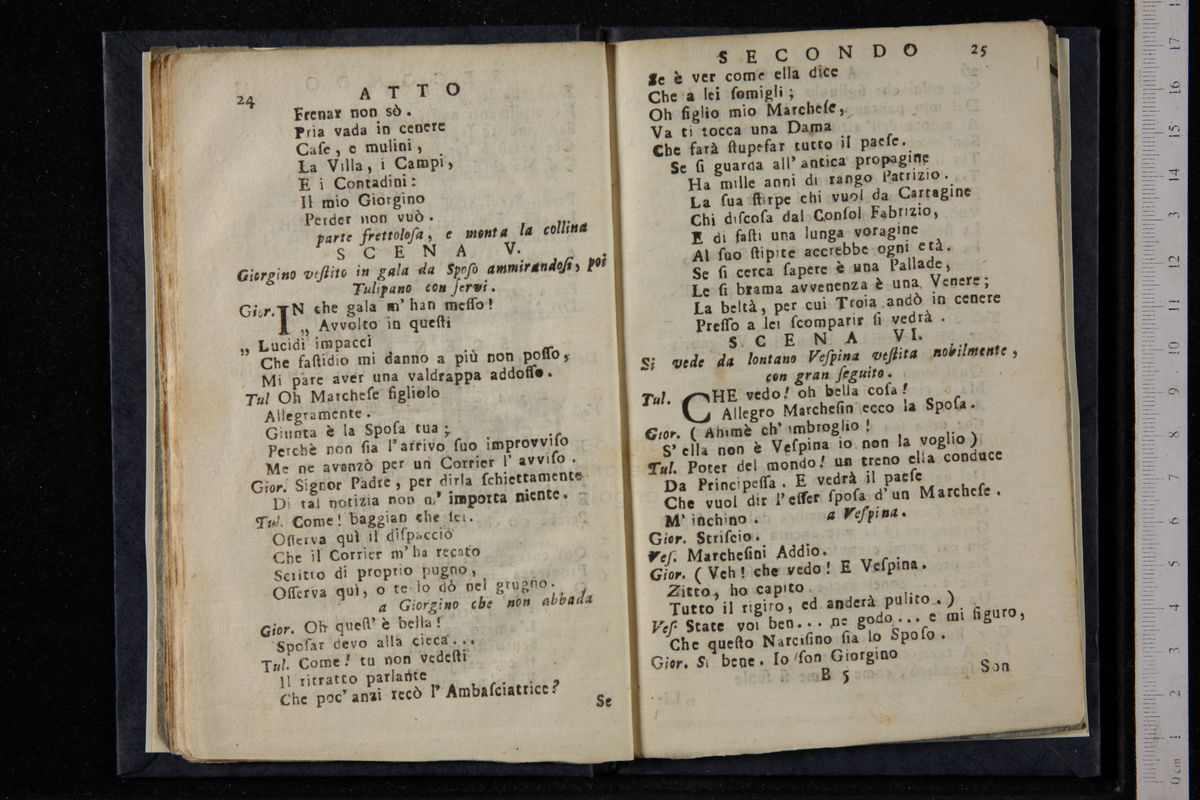 24 ATTO
Frenar non sò.
Pria vada in cenere
Caſe, e mulini,
La Villa, i Campi,
E i Contadini:
Il mio Giorgino
Perder non vuò.
parte frettoloſa, e monta la collina
SCENA V.
Giorgino veſtito in gala da Spoſo ammirandoſi, poi
Tulipano con ſervi.
Gior. IN che gala m' han meſſo!
„ Avvolto in queſti
„ Lucidi impacci
Che faſtidio mi danno a più non poſſo,
Mi pare aver una valdrappa addoſſo.
Tul Oh Marcheſe figliolo
Allegramente.
Giunta è la Spoſa tua;
Perchè non ſia l'arrivo ſuo improvviſo
Me ne avanzò per un Corrier l' avviſo.
Gior. Signor Padre, per dirla ſchiettamente
Di tal notizia non n' importa niente.
Tul. Come! baggian che ſei.
Oſſerva quì il diſpaccio
Che il Corrier m' ha recato
Scritto di proprio pugno,
Oſſerva quì, o te lo dò nel grugno.
a Giorgino che non abbada
Gior. Oh queſt' è bella!
Spoſar devo alla cieca...
Tul. Come! tu non vedeſti
Il ritratto parlante
Che poc' anzi recò l' Ambaſciatrice?
Se
SECONDO 25
Se è ver come ella dice
Che a lei ſomigli;
Oh figlio mio Marcheſe,
Va ti tocca una Dama
Che farà ſtupefar tutto il paeſe.
Se ſi guarda all' antica propagine
Ha mille anni di rango Patrizio.
La ſua ſtirpe chi vuol da Cartagine
Chi diſceſa dal Conſol Fabrizio,
E di faſti una lunga voragine
Al ſuo ſtipite accrebbe ogni età.
Se ſi cerca ſapere è una Pallade,
Le ſi brama avvenenza è una Venere;
La beltà, per cui Troia andò in cenere
Preſſo a lei ſcomparir ſi vedrà.
SCENA VI.
Si vede da lontano Veſpina veſtita nobilmente,
con gran ſeguito.
Tul. CHE vedo! oh bella coſa!
Allegro Marcheſin ecco la Spoſa.
Gior. (Ahimè ch' imbroglio!
S' ella non è Veſpina io non la voglio)
Tul. Poter del mondo! un treno ella conduce
Da Principeſſa. E vedrà il paeſe
Che vuol dir l'eſſer ſpoſa d'un Marcheſe.
M' inchino. a Veſpina.
Gior. Striſcio.
Veſ. Marcheſini Addio.
Gior. (Veh! che vedo! E Veſpina.
Zitto, ho capito
Tutto il rigiro, ed anderà pulito.)
Veſ. State voi ben... ne godo... e mi figuro,
Che queſto Narciſino ſia lo Spoſo.
Gior. Sì bene. Io ſon Giorgino
B 5 Son